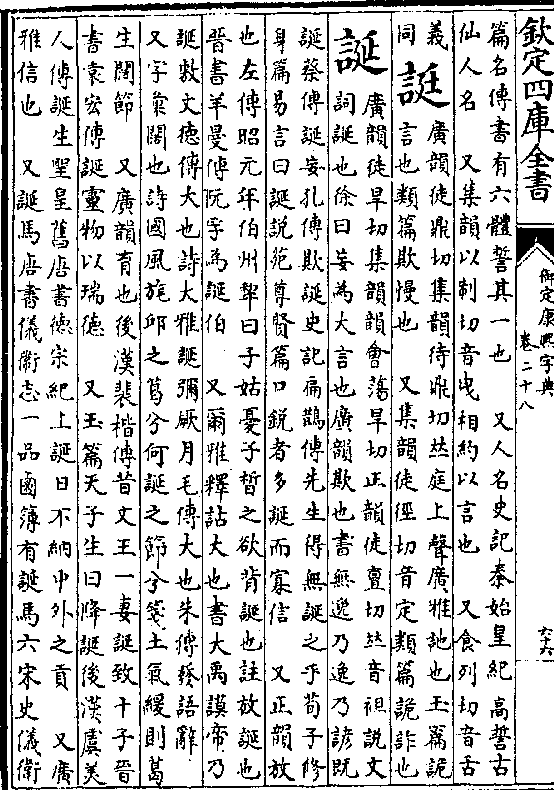 欽定四庫全書
御定康熙字典
卷二十八
六十六
篇名傳書有六體誓其一也 又人名史記秦始皇紀高誓古
仙人名 又集韻以制切音曳相約以言也 又食列切音舌
義
誔
廣韻徒鼎切集韻待鼎切𠀤庭上聲廣雅訑也玉篇詭
同
言也類篇欺慢也 又集韻徒徑切音定類篇詭詐也
誕
廣韻徒旱切集韻韻會蕩旱切正韻徒亶切𠀤音袒說文
詞誕也徐曰妄為大言也廣韻欺也書無逸乃逸乃諺既
誕蔡傳誕妄孔傳欺誕史記扁鵲傳先生得無誕之乎荀子修
身篇易言曰誕說苑尊賢篇口銳者多誕而寡信 又正韻放
也左傳昭元年伯州犂曰子姑憂子皙之欲背誕也註放誕也
晉書羊曼傳阮孚為誕伯 又爾雅釋詁大也書大禹謨帝乃
誕敷文德傳大也詩大雅誕彌厥月毛傳大也朱傳發語辭
又字彙闊也詩國風旄邱之葛兮何誕之節兮箋土氣緩則葛
生闊節 又廣韻育也後漢裴楷傳昔文王一妻誕致十子晉
書袁宏傳誕靈物以瑞德 又玉篇天子生曰降誕後漢虞美
人傳誕生聖皇舊唐書德宗紀上誕日不納中外之貢 又廣
雅信也 又誕馬唐書儀衞志一品鹵簿有誕馬六宋史儀衞